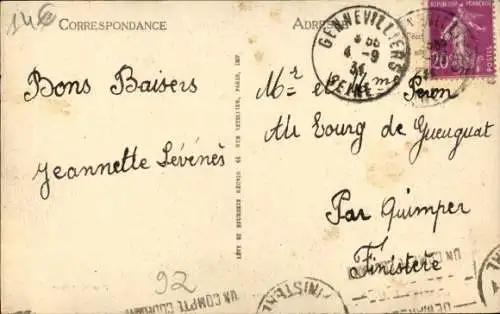 14€
CORRESPONDANCE
ADRESSE
GENNEVILLIERS
4-9
34
SEINE
20
Bons Baisers
Jeannette Lévénès
Mr et Mme Peron
Au bourg de Gueuguat
Par Quimper
Finistère
92
UN COMPTE COURANT
FINISTERE